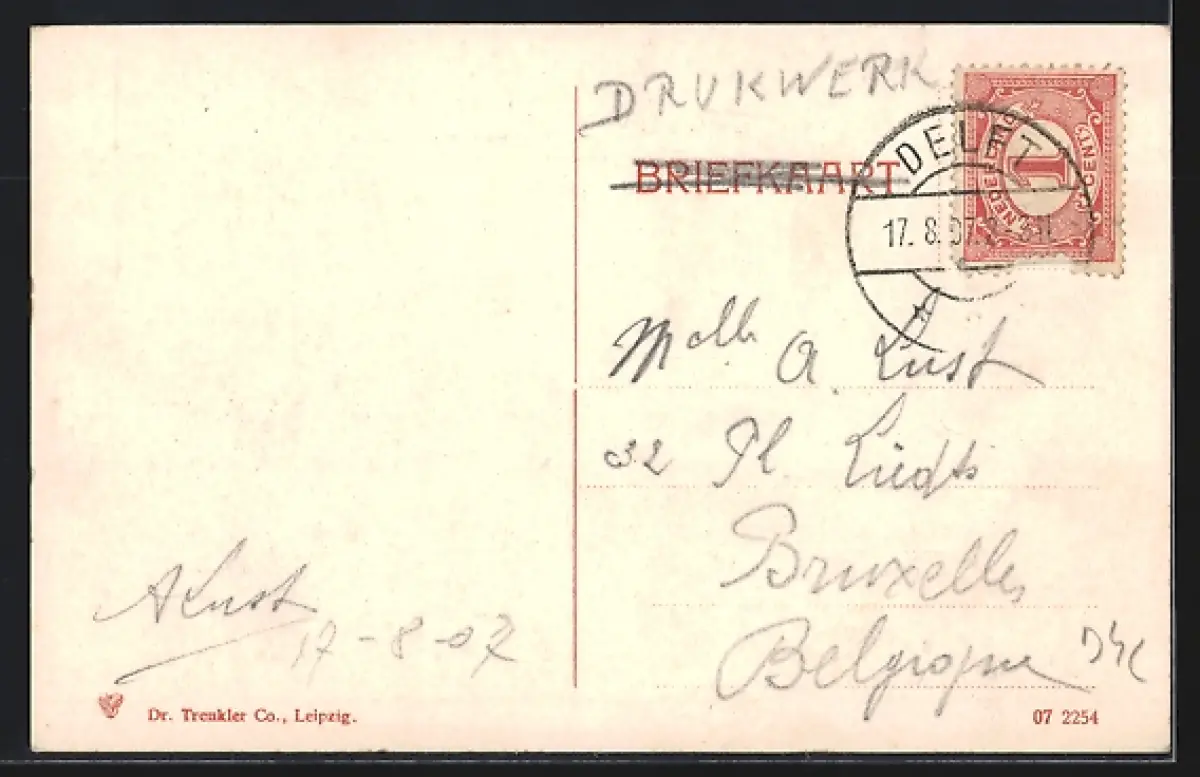 DRUKWERK
BRIEFKAART
NEDERLAND 1 CENT
DELFT
17. 8. 07.
Melle A Lust
32 Pl. Liedts
Bruxelles
Belgique
A Lust
17-8-07
Dr. Trenkler Co., Leipzig.
07 2254